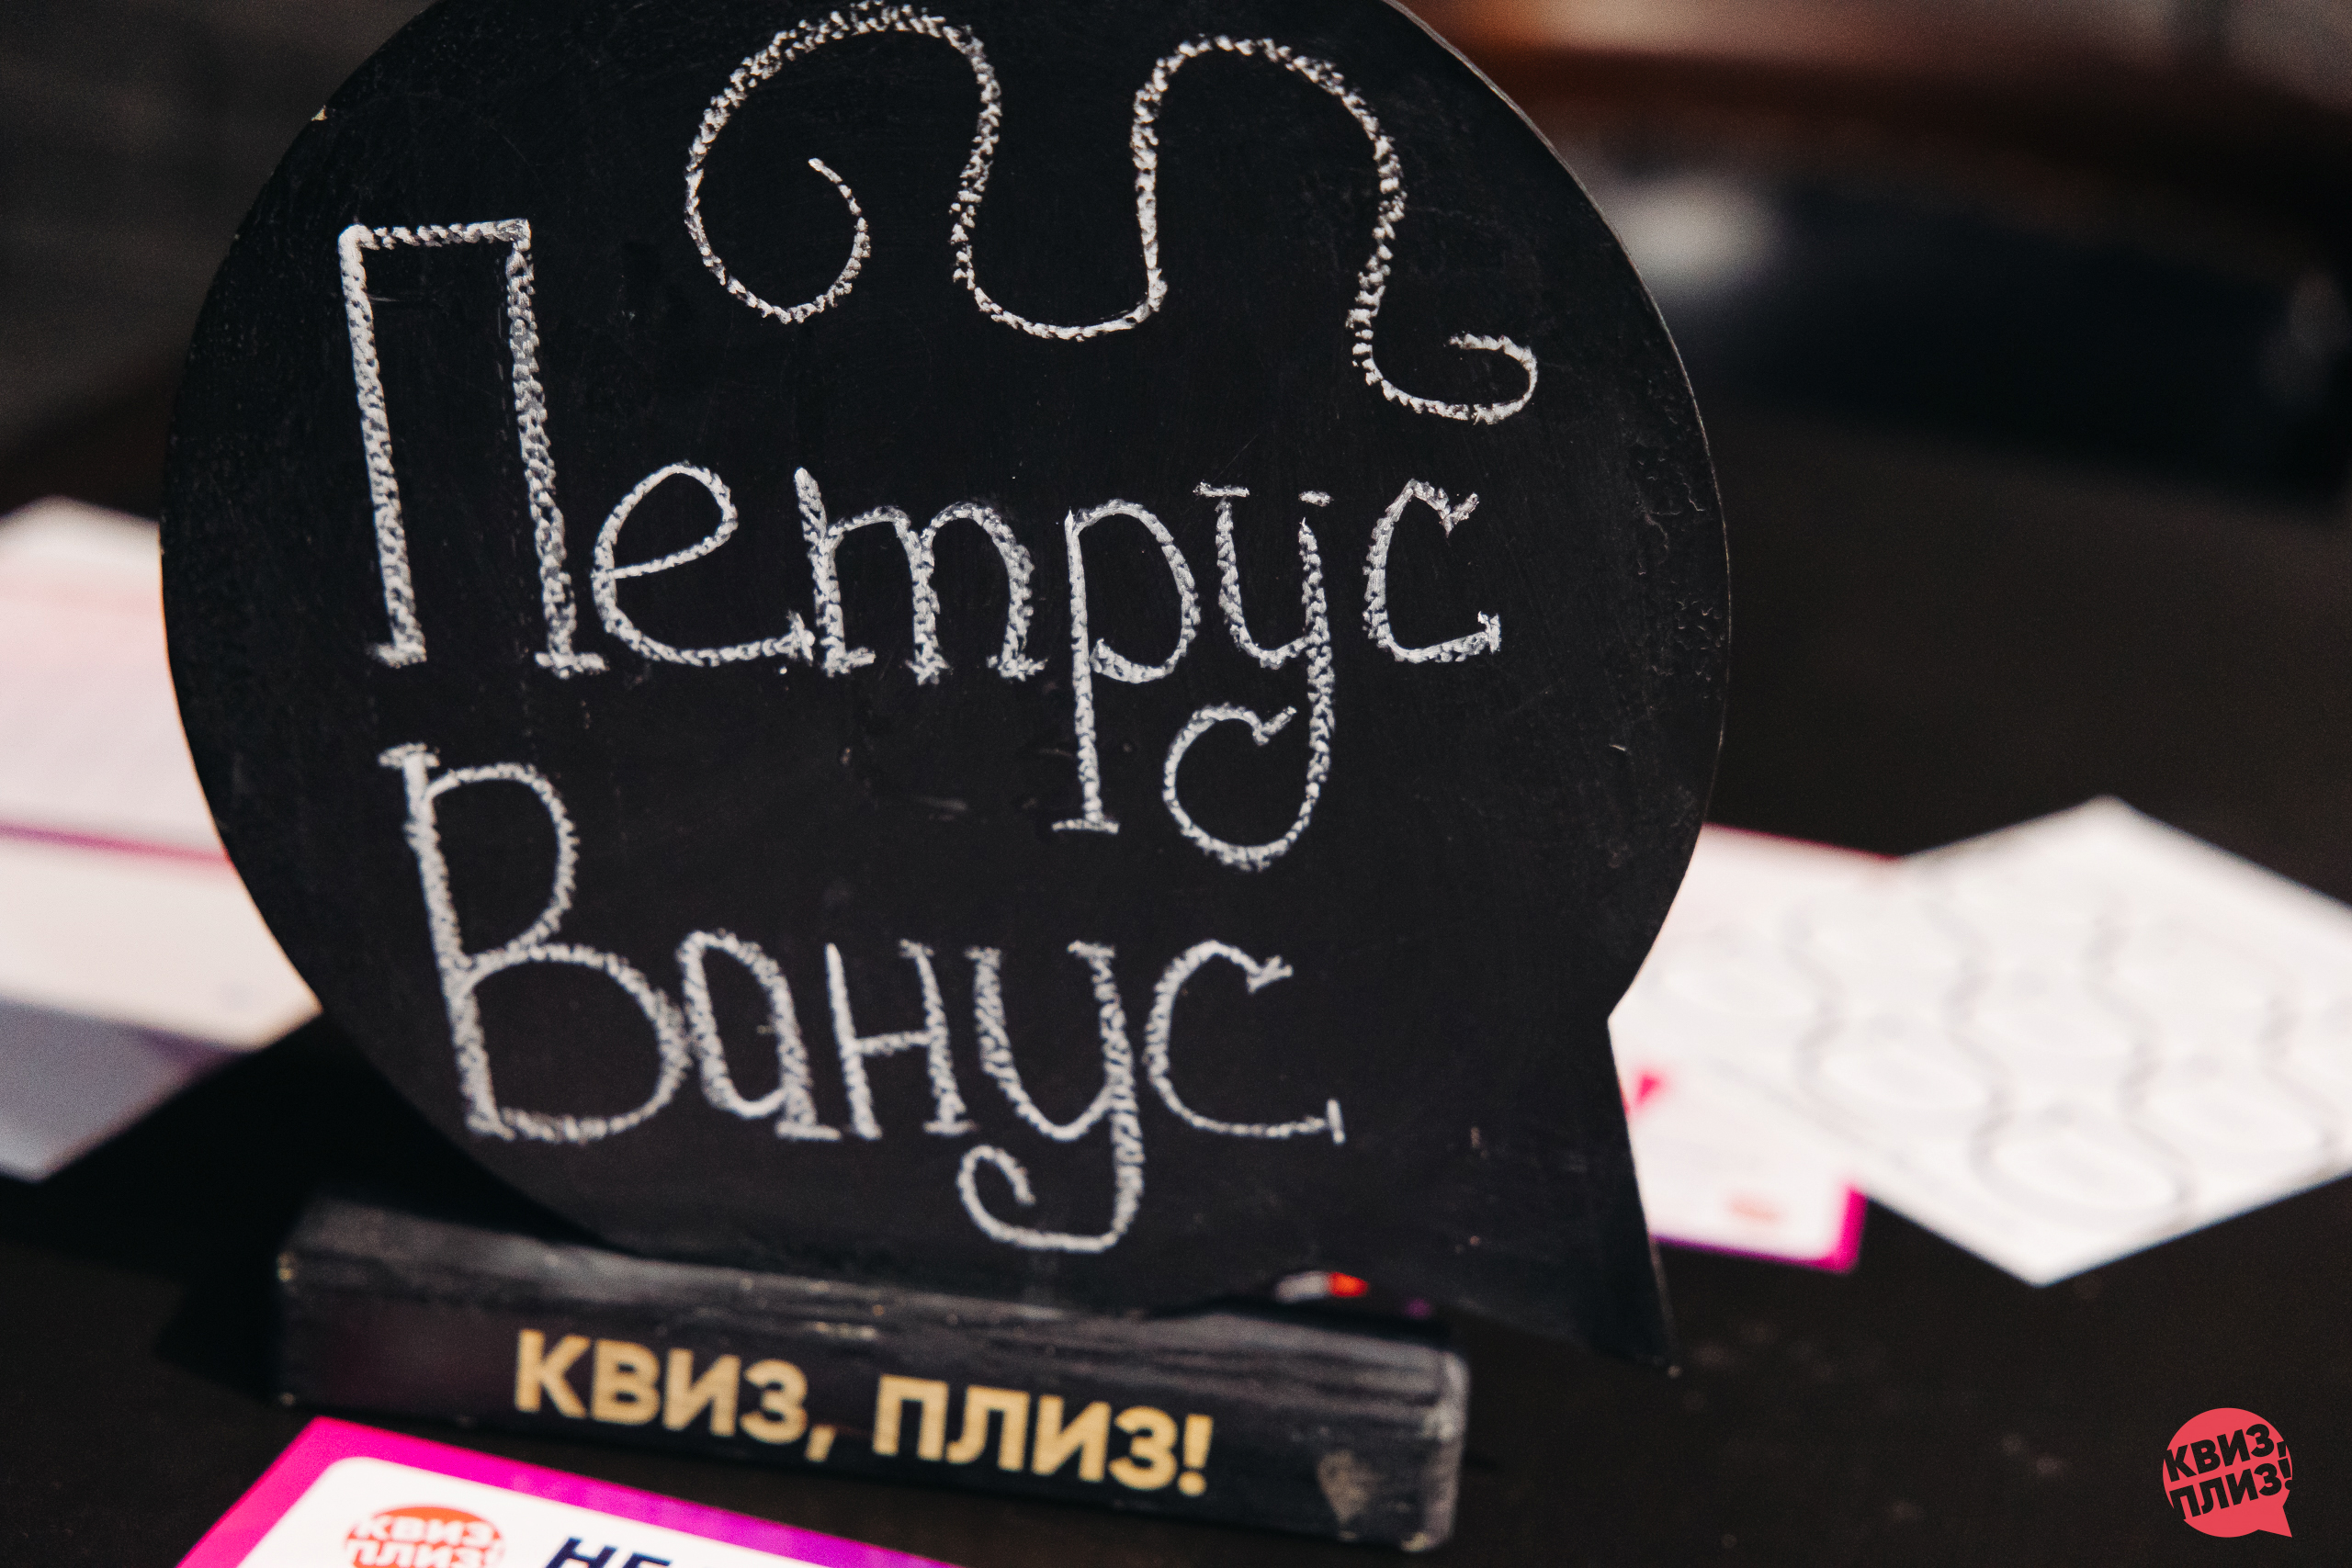 Петрус
Ванус
КВИЗ, ПЛИЗ!
КВИЗ,
ПЛИЗ!
НЕ
КВИЗ,
ПЛИЗ!